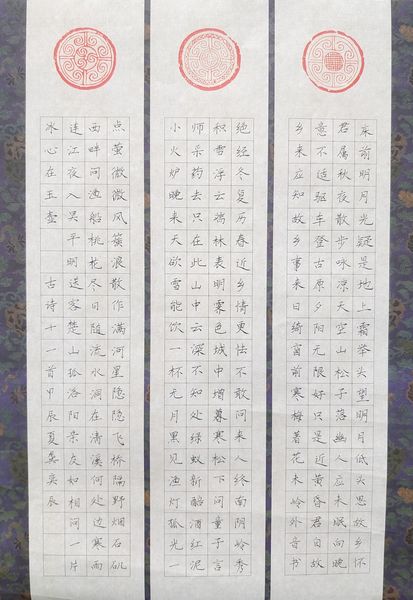 床前明月光疑是地上霜举头望明月低头思故乡怀
君属秋夜散步咏凉天空山松子落幽人应未眠向晚
意不适驱车登古原夕阳无限好只是近黄昏君自故
乡来应知故乡事来日绮窗前寒梅著花未岭外音书
绝经冬复历春近乡情更怯不敢问来人终南阴岭秀
积雪浮云端林表明霁色城中增暮寒松下问童子言
师采药去只在此山中云深不知处绿蚁新醅酒红泥
小火炉晚来天欲雪能饮一杯无月黑见渔灯孤光一
点萤微微风簇浪散作满河星隐隐飞桥隔野烟石矶
西畔问渔船桃花尽日随流水洞在清溪何处边寒雨
连江夜入吴平明送客楚山孤洛阳亲友如相问一片
冰心在玉壶 古诗十一首甲辰夏龚奕辰